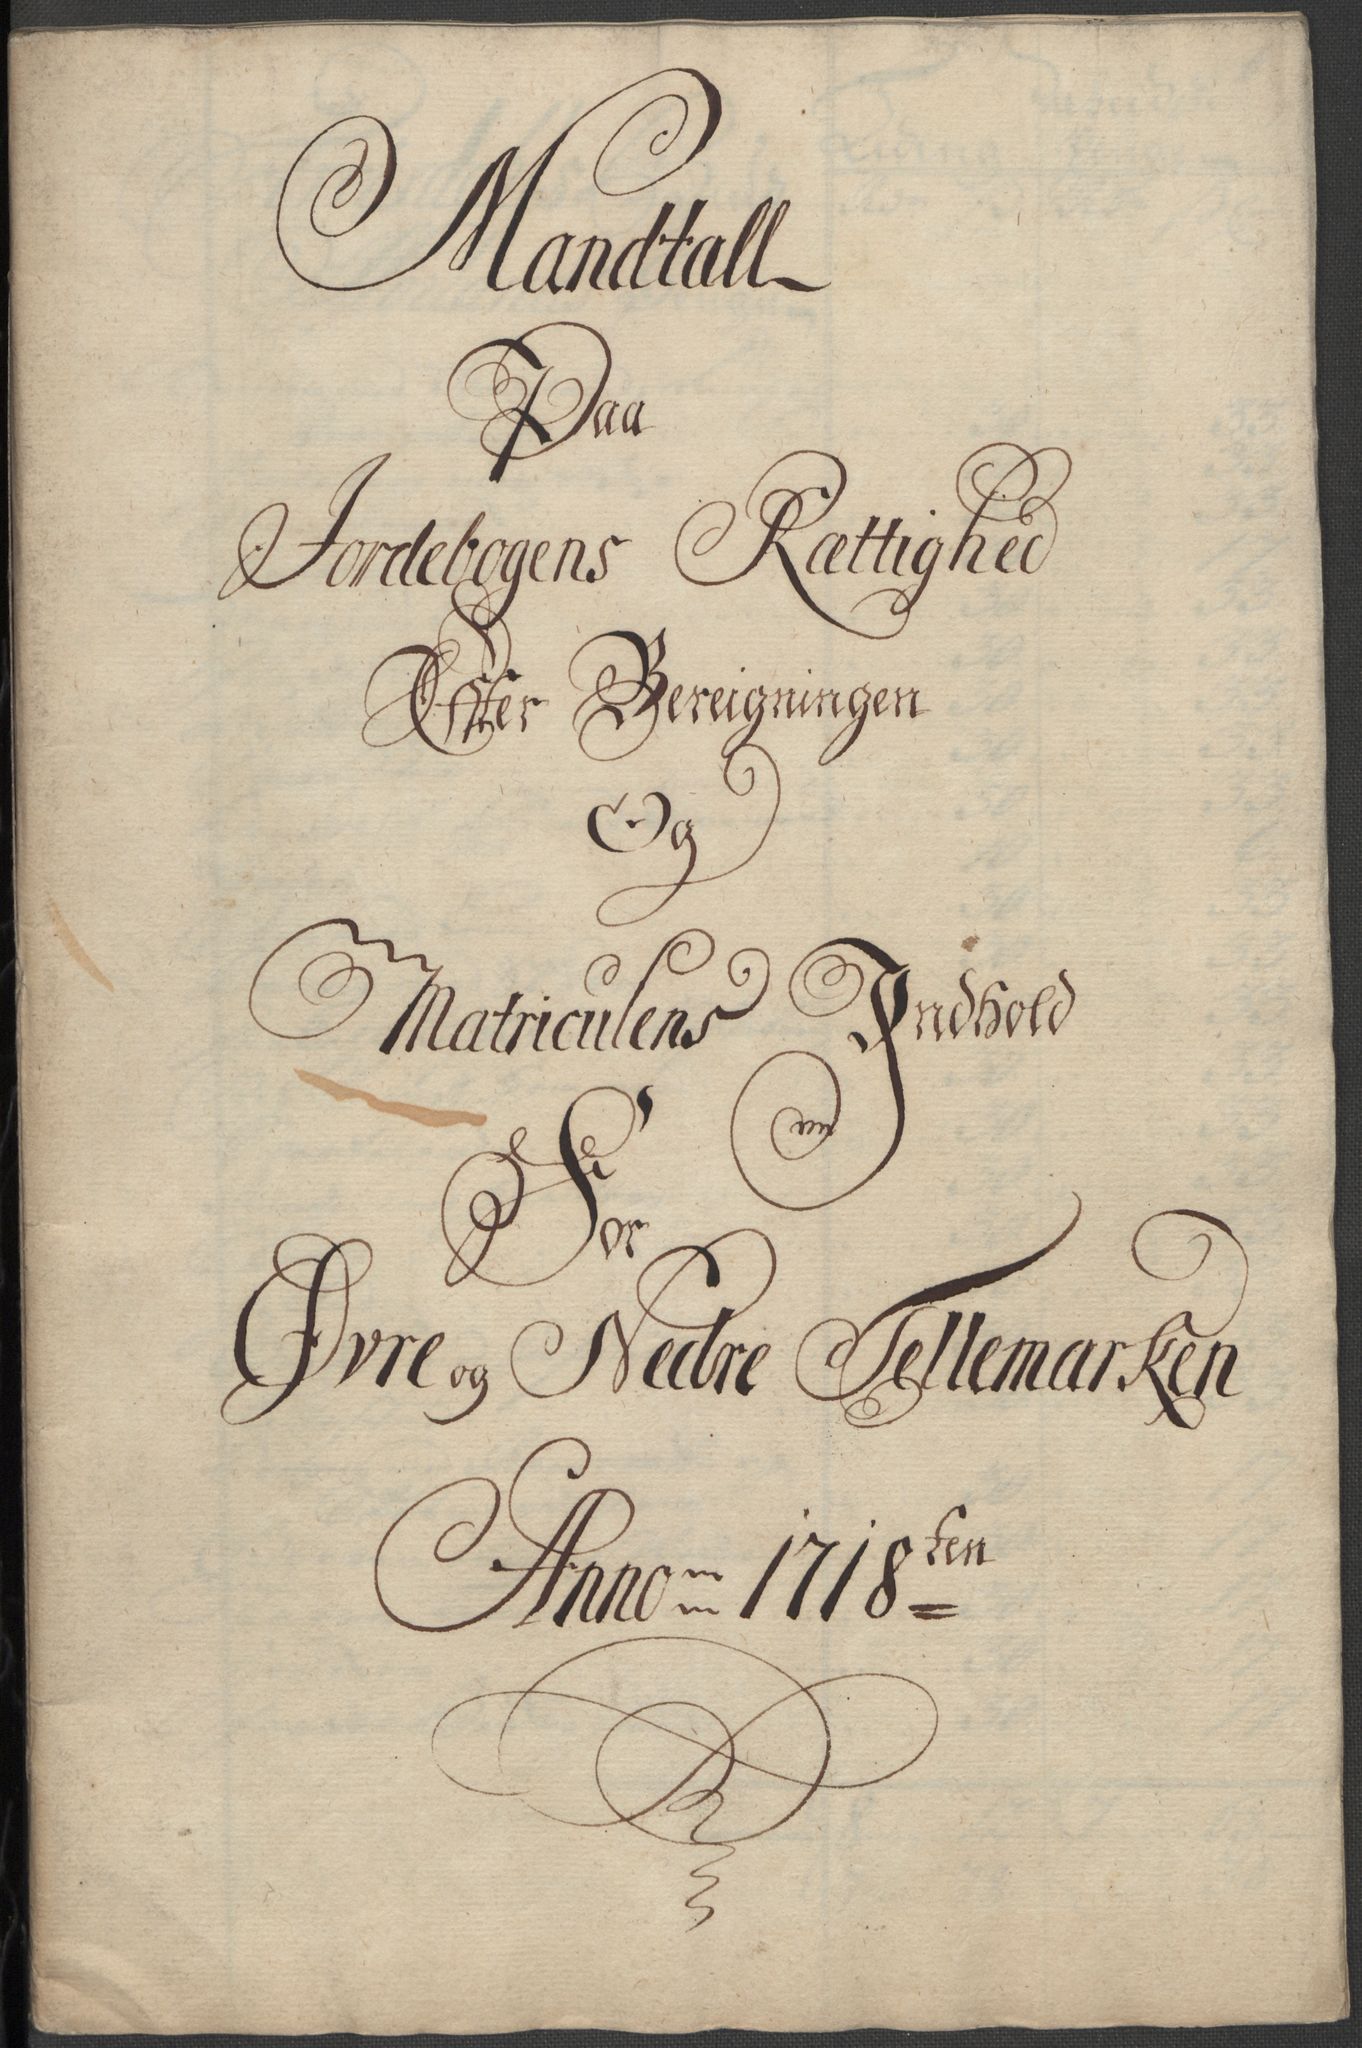 Mandtall
Paa
Jordebogens Rættighed
Effter Bereigningen
Og
Matriculens Indhold
For
Øvre og Nedre Tellemarken
Anno 1718ten